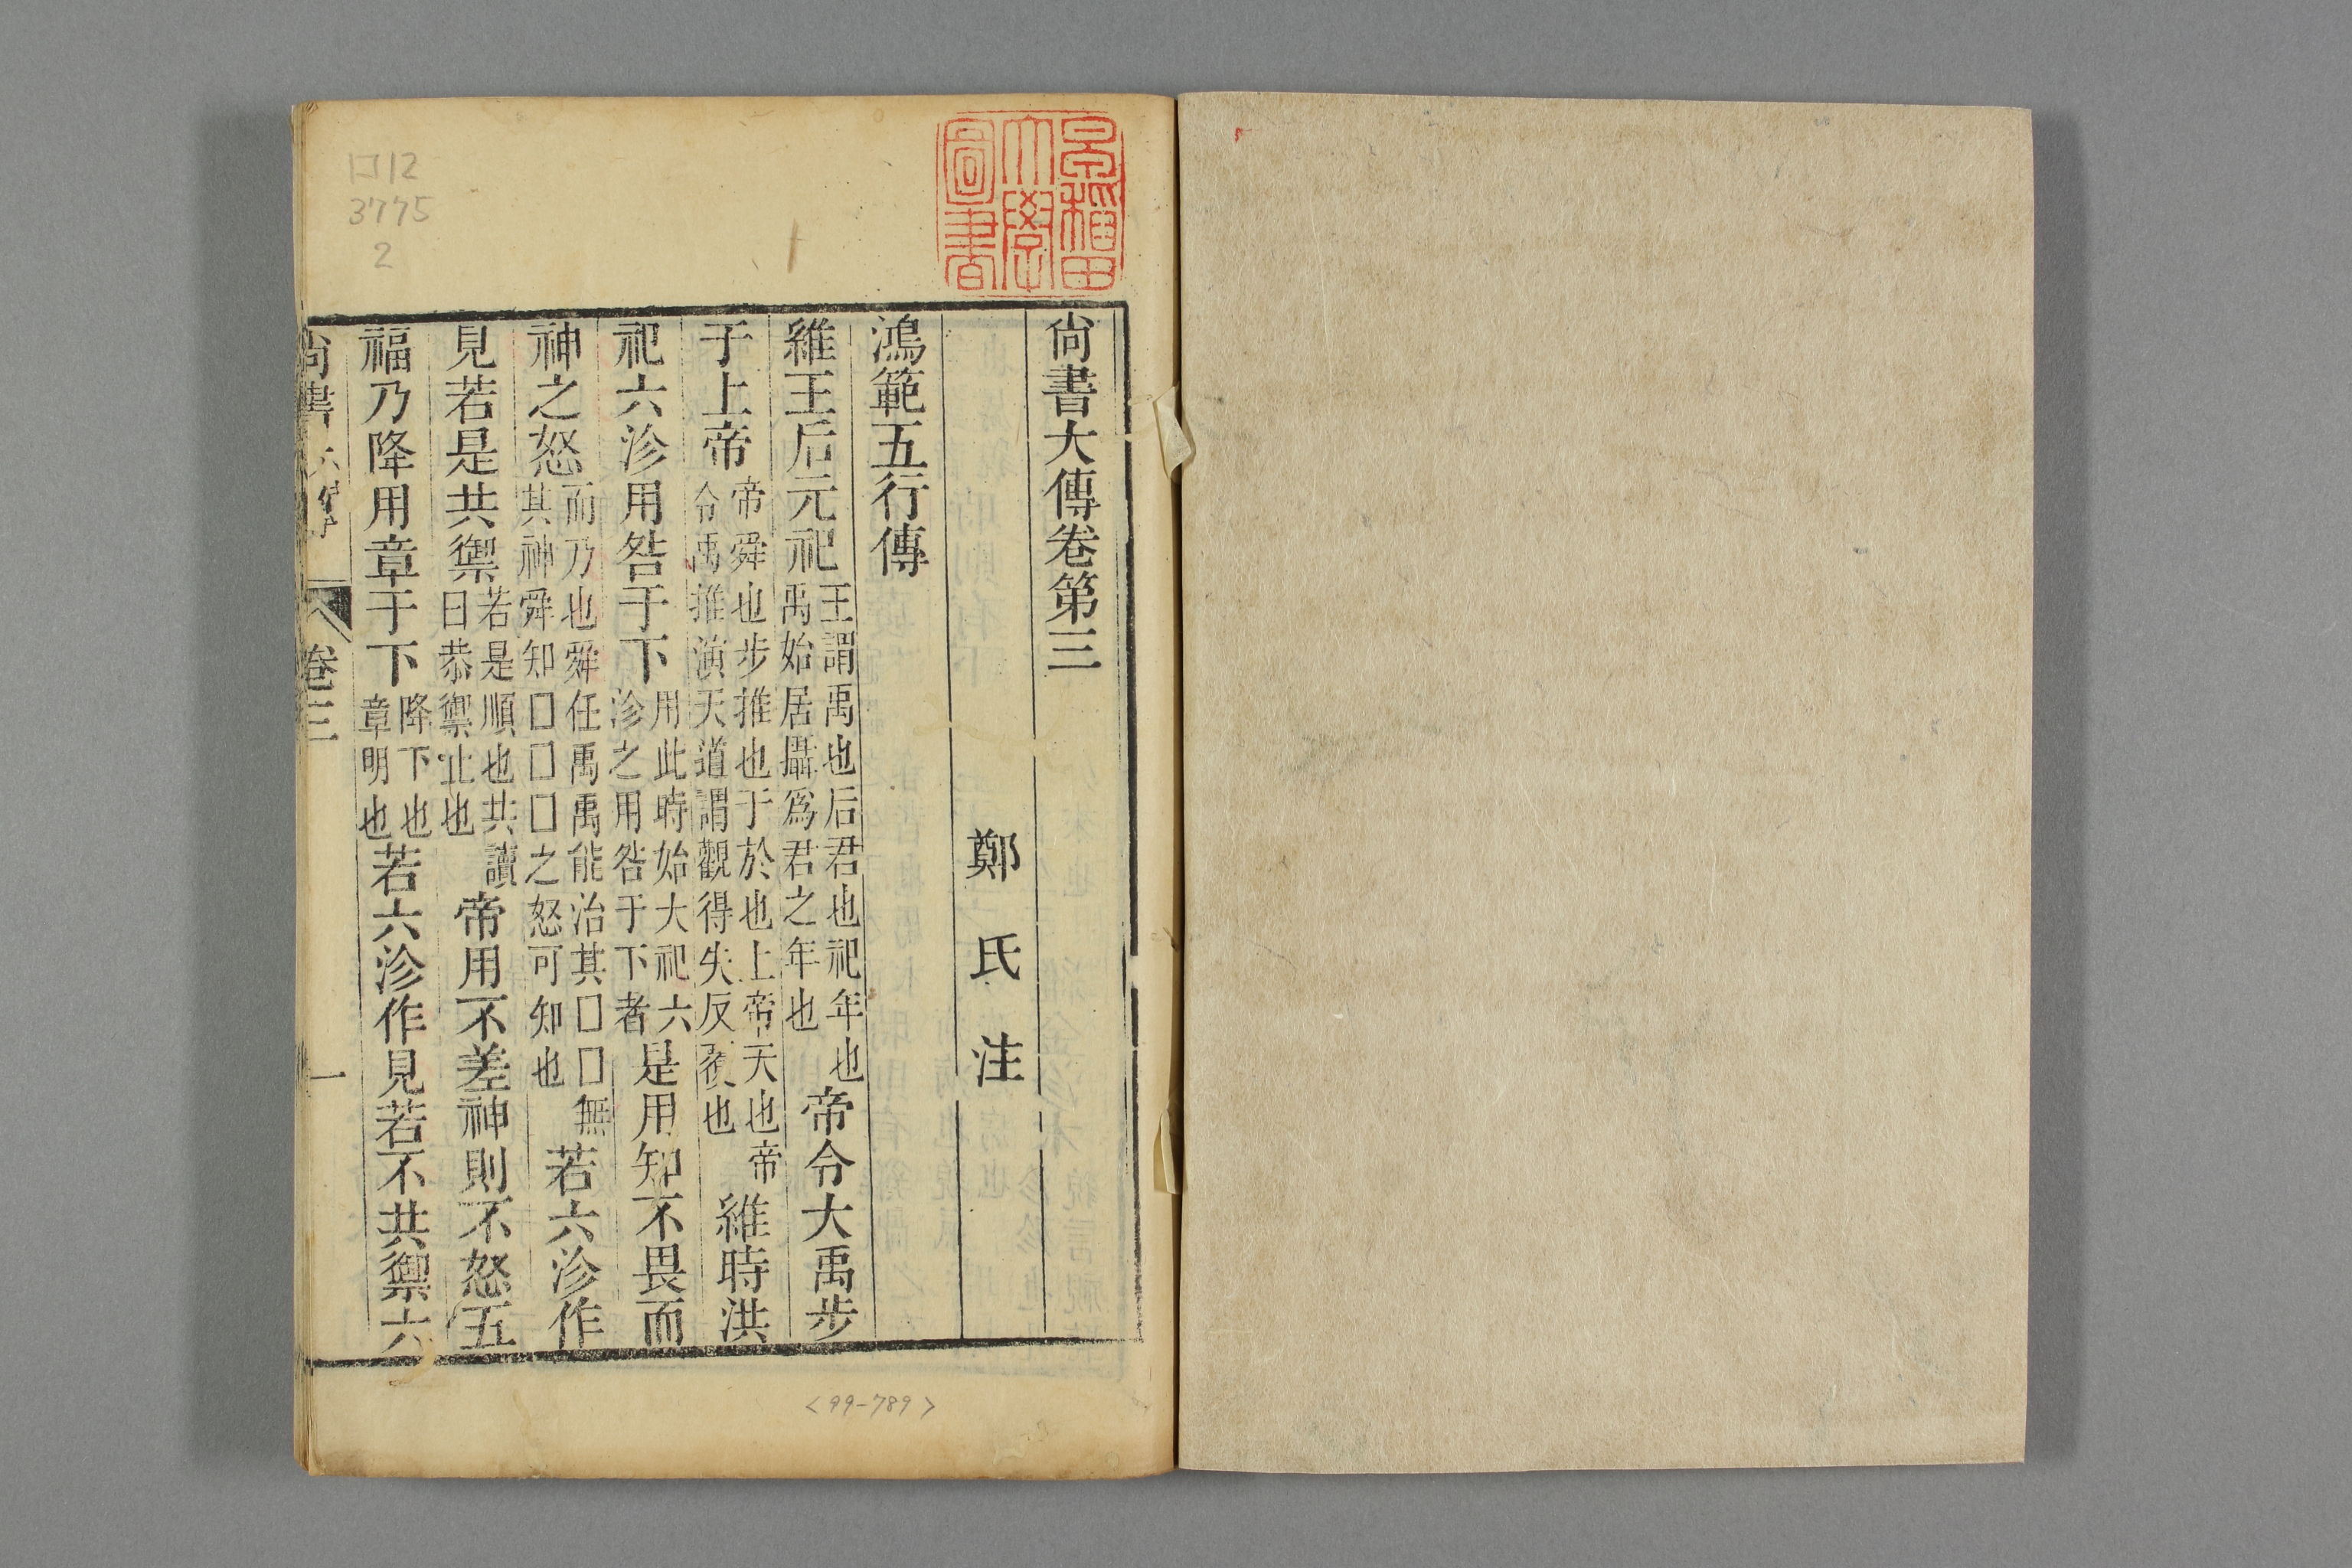 早稻田
大學
圖書
尙書大傳卷第三
鄭氏注
鴻範五行傳
維王后元祀王謂禹也后君也祀年也禹始居攝爲君之年也帝令大禹步
于上帝帝舜也步推也于於也上帝天也帝令禹推演天道謂觀得失反覆也維時洪
祀六沴用咎于下用此時始大祀六沴之用咎于下者是用知不畏而
神之怒而乃也舜任禹禹能治其囗囗無其神舜知囗囗囗之怒可知也若六沴作
見若是共禦若是順也共讀曰恭禦止也帝用不差神則不怒五
福乃降用章于下降下也章明也若六沴作見若不共禦六
尙書大傳 卷三 一
口12
3775
2
<99-789>